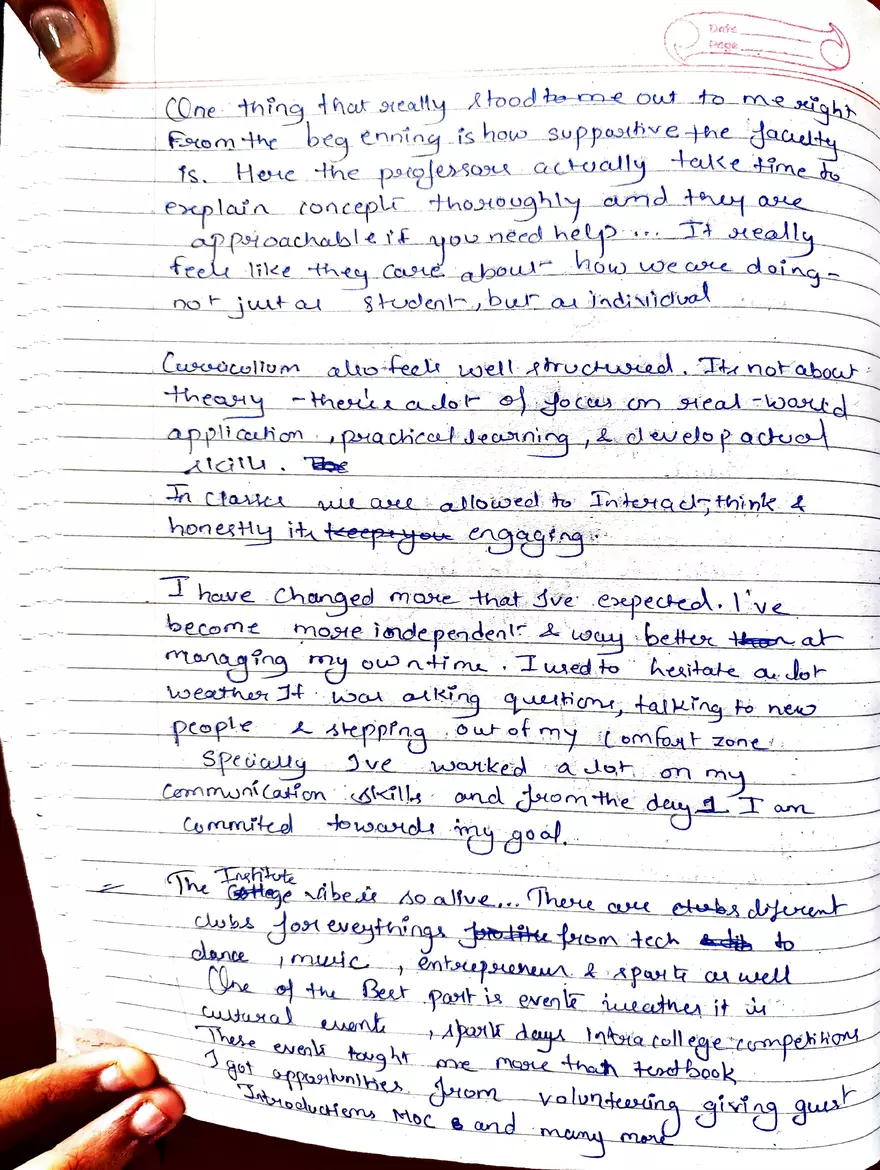 Date
Page
One thing that really stood to me out to me right
From the beg enning is how supportive the faculty
is. Here the professors actually take time to
explain concepts thoroughly and they are
approachable if you need help... It really
feels like they care about how we are doing-
not just as student, but as individual
Curriculium also feels well structured. Its not about
theory - there's a lot of focus on real-world
application, practical learning, & develop actual
skills. The
In classes we are allowed to Interact, think &
honestly its keeps you engaging.
I have changed more that I've expected. I've
become more independent & way better than at
managing my own time. I used to hesitate a lot
weather It was asking questions, talking to new
people & stepping out of my comfort zone
specially I've worked a lot on my
communication skills and from the day 1 I am
commited towards my goal.
Institute
= The College vibe is so alive... There are clubs diferent
clubs for eveythings for like from tech to
dance, music, entrepreneur & sports as well
One of the Best part is events weather it is
cultural events, sports days Intra college competitions
These events taught me more than textbook
I got opportunities from volunteering giving guest
Introductions MOC & and many more